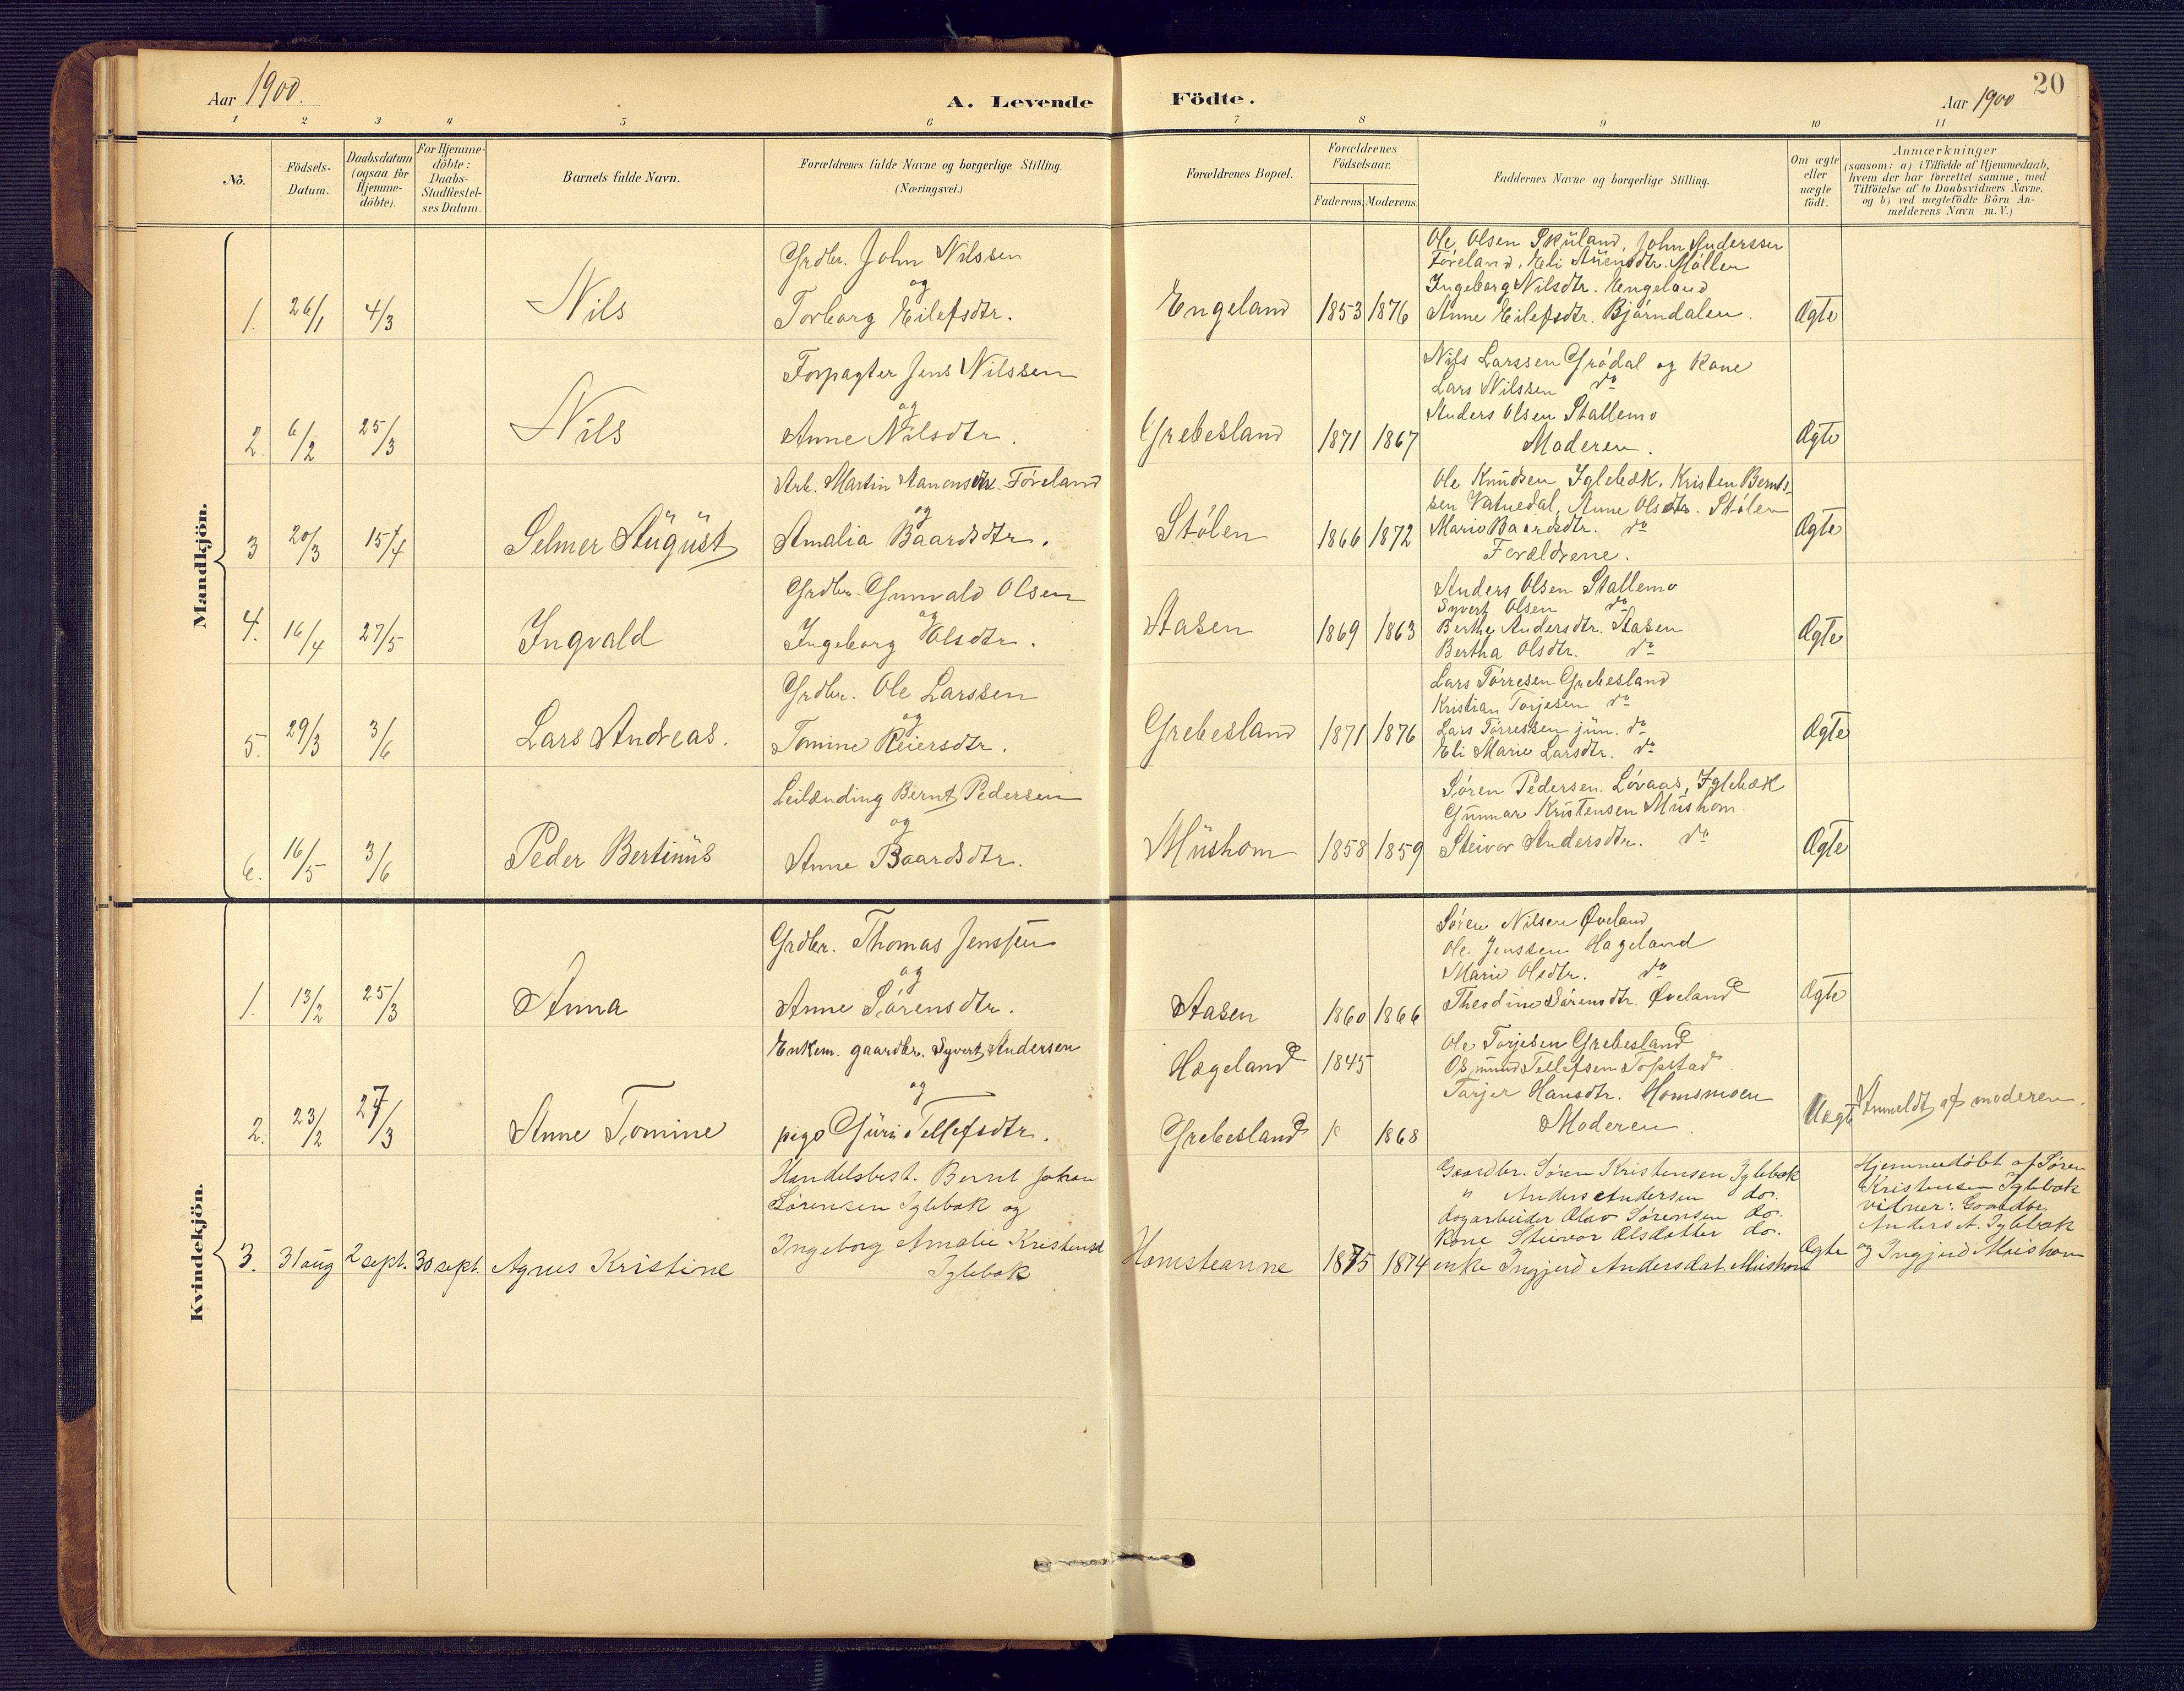 Aar 1900.
A. Levende Födte.
Aar 1900
20
1 2 3 4 5 6 7 8 9 10 11
No.
Födsels-Datum.
Daabsdatum (ogsaa for Hjemme-döbte).
For Hjemme-döbte: Daabs-Stadfæstel-ses Datum.
Barnets fulde Navn.
Forældrenes fulde Navne og borgerlige Stilling.
(Næringsvei.)
Forældrenes Bopæl.
Forældrenes Födselsaar.
Faderens. Moderens.
Faddernes Navne og borgerlige Stilling.
Om ægte eller uægte födt.
Anmærkninger
(saasom: a) i Tilfælde af Hjemmedaab,
hvem der har forrettet samme, med
Tilföielse af to Daabsvidners Navne.
og b) ved uægtefödte Börn An-
melderens Navn m.V.)
Mandkjön.
1. 26/1 4/3 Nils
Grdbr. John Nilssen
og
Torborg Eilefsdtr.
Engeland 1853 1876
Ole Olsen Skuland, John Anderssen
Føreland, Eli Auensdtr. Møllen
Ingeborg Nilsdtr. Engeland
Anne Eilefsdtr. Bjørndalen.
Ægte
2. 6/2 25/3 Nils
Forpagter Jens Nilssen
og
Anne Nilsdtr.
Grebesland 1871 1867
Nils Larssen Grødal og Kone
Lars Nilssen do
Anders Olsen Stallemo
Moderen.
Ægte
3 20/3 15/4 Selmer August
Arb. Martin Aanonsen Føreland
og
Amalia Baardsdtr.
Stølen 1866 1872
Ole Knudsen Iglebæk, Kristen Bernt-
sen Vatnedal, Anne Olsdtr. Stølen
Marie Baardsdtr. do
Forældrene.
Ægte
4. 16/4 27/5 Ingvald
Grdbr. Gunvald Olsen
og
Ingeborg Olsdtr.
Aasen 1869 1863
Anders Olsen Stallemo
Syvert Olsen do
Berthe Andersdtr. Aasen
Bertha Olsdtr. do
Ægte
5. 29/3 3/6 Lars Andreas.
Grdbr. Ole Larssen
og
Tomine Reiersdtr.
Grebesland 1871 1876
Lars Tørresen Grebesland
Kristian Torjesen do
Lars Tørressen jün. do
Eli Marie Larsdtr. do
Ægte
6. 16/5 3/6 Peder Bertinus
Leilænding Bernt Pedersen
og
Anne Baardsdtr.
Mushom 1858 1859
Søren Pedersen Løvaas, Iglebæk
Gunnar Kristensen Mushom
Steivor Andersdtr. do
Ægte
Kvindekjön.
1. 13/2 25/3 Anna
Grdbr. Thomas Jenssen
og
Anne Sørensdtr.
Aasen 1860 1866
Søren Nilsen Øveland
Ole Jenssen Hageland
Marie Olsdtr. do
Theodine Sørensdtr. Øveland
Ægte
2. 23/2 27/3 Anne Tomine
Enkem. gaardbr. Syvert Andersen
og
pige Guri Tellefsdtr.
Hægeland 1845
Grebesland 1868
Ole Torjesen Grebesland
Osmund Tellefsen Topstad
Tarjer Hansdtr. Homsmoen
Moderen.
Uægte
Anmeldt af moderen.
3. 31 aug 2 sept. 30 sept. Agnes Kristine
Handelsbest. Bernt Johan
Sørensen Iglebæk og
Ingeborg Amalie Kristensd
Iglebæk
Homsteanne 1875 1874
Gaardbr. Søren Kristensen Iglebæk
" Anders Andersen do.
dagarbeider Olav Sørensen do.
Kone Steivor Olsdatter do.
enke Ingjerd Andersdat. Mushom
Ægte
Hjemmedøbt af Søren
Kristensen Iglebæk
vitner: Gaardbr.
Anders A. Iglebæk
og Ingjerd Mushom